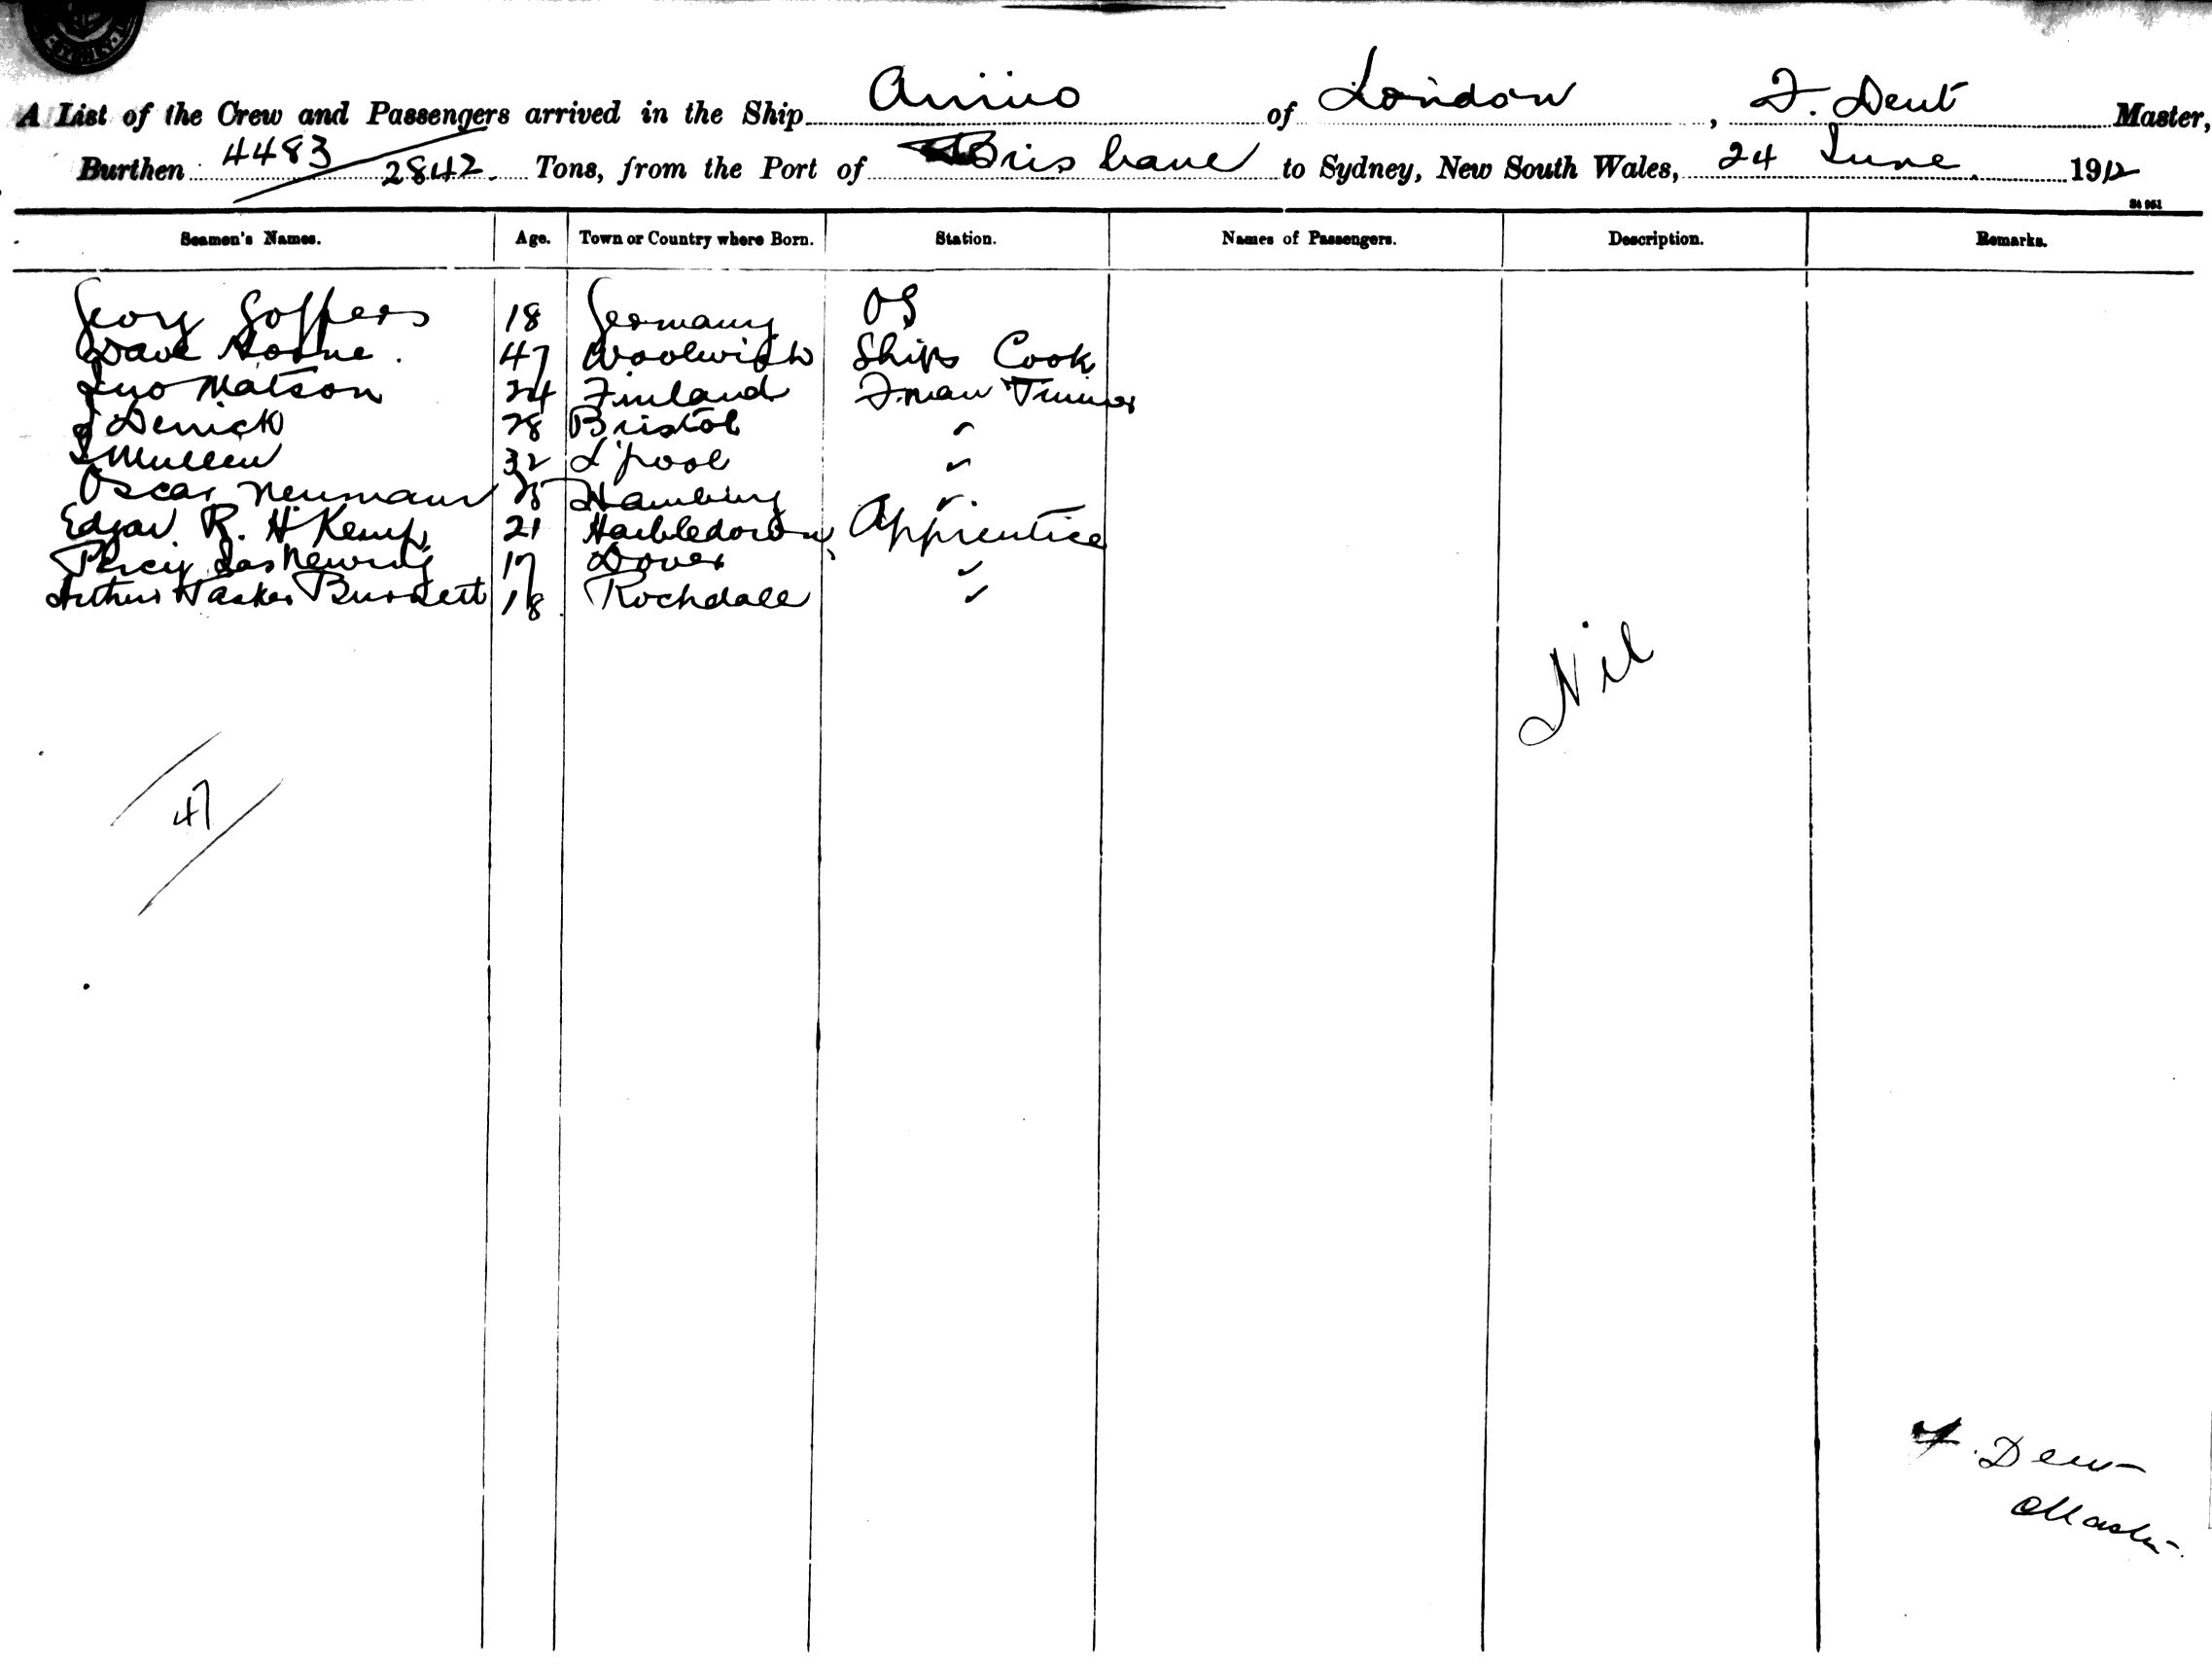 A List of the Crew and Passengers arrived in the Ship of London, F. Dent Master,
Burthen 4483 / 2842. Tons, from the Port of Brisbane to Sydney, New South Wales, 24 June. 1912
Seamen's Names. Age. Town or Country where Born. Station. Names of Passengers. Description. Remarks.
Georg Goffers 18 Germany OS
Dave Horne. 47 Woolwich Ships Cook
Jno Matson 24 Finland F.man Trimmer
Derrick 28 Bristol "
J Mullen 32 L'pool "
Oscar Neumann 25 Hamburg "
Edgar R. H Kemp 21 Harbledown Apprentice
Percy Jas Newing 17 Dover "
Arthur Tasker Burnett 18 Rochdale "
Nil
47
F. Dent
Master